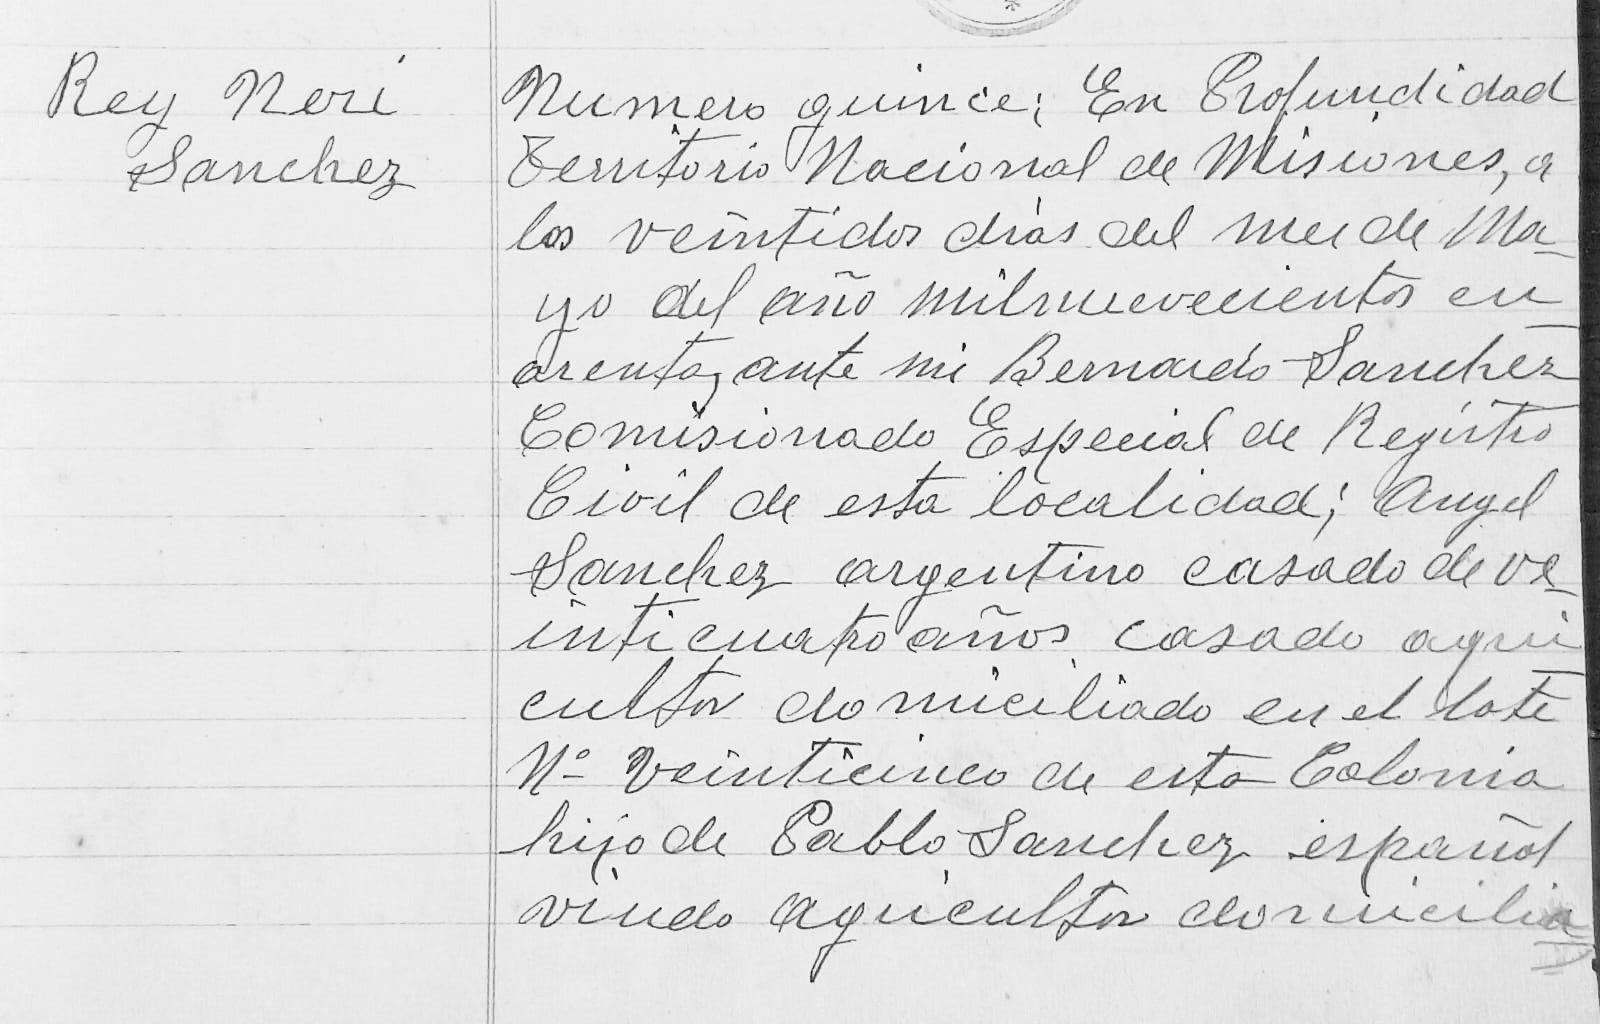 Rey Neri
Sanchez
Numero quince; En Profundidad
Territorio Nacional de Misiones, a
los veintidos dias del mes de Ma-
yo del año milnuevecientos cu-
arenta, ante mi Bernardo Sanchez
Comisionado Especial de Registro
Civil de esta localidad; Angel
Sanchez argentino casado de ve-
inticuatro años casado agri
cultor domiciliado en el lote
Nº veinticinco de esta Colonia
hijo de Pablo Sanchez español
viudo agricultor domicilia